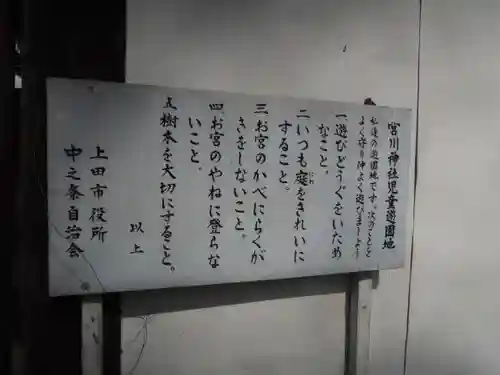 宮川神社児童遊園地
私達の遊園地です。次のことを
よく守り仲よく遊びましょう
一、遊びどうぐをいため
なこと。
二、いつも庭をきれいに
にわ
すること。
三、お宮のかべにらくが
きをしないこと。
四、お宮のやねに登らな
いこと。
五、樹木を大切にすること。
以上
上田市役所
中之条自治会